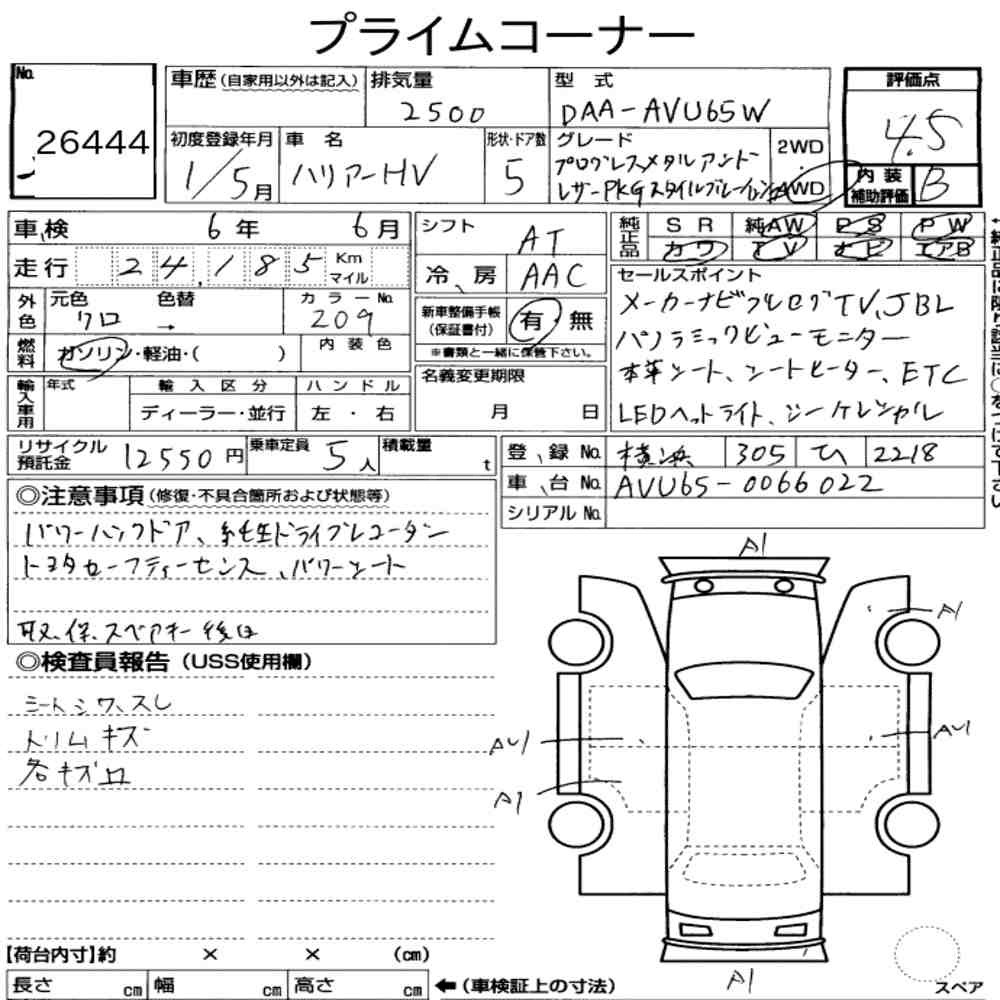 プライムコーナー
No.
26444
車歴(自家用以外は記入)
排気量
2500
型 式
DAA-AVU65W
評価点
4.5
初度登録年月
1/5月
車 名
ハリアーHV
形状・ドア数
5
グレード
プログレスメタルアンド
レザーPKGスタイル
2WD
・
4WD
内 装
補助評価
B
車、検 6年 6月
走行 24,185 Km
マイル
シフト
AT
冷、房 AAC
純正品
SR 純AW PS PW
カワ TV ナビ エアB
外色
元色 色替
クロ →
カラーNo.
209
燃料
ガソリン・軽油・( )
内装色
新車整備手帳
(保証書付)
有 無
※書類と一緒に保管下さい。
セールスポイント
メーカーナビフルセグTV、JBL
パノラミックビューモニター
本革シート、シートヒーター、ETC
LEDヘッドライト、
輸入車用
年式
輸入区分
ハンドル
ディーラー・並行
左 ・ 右
名義変更期限
月 日
リサイクル
預託金
12550円
乗車定員
5人
積載量
t
登、録 No. 横浜 305 ひ 2218
車、台 No. AVU65-0066022
シリアル No.
◎注意事項(修復・不具合箇所および状態等)
パワーバックドア、純正ドライブレコーダー
トヨタセーフティーセンス、パワーシート
取、保、スペアキー後日
◎検査員報告(USS使用欄)
シートシワ、スレ
トリムキズ
各キズ
A1
A1
AU1
AU1
A1
A1
【荷台内寸】約 × × (cm)
長さ cm 幅 cm 高さ cm
←(車検証上の寸法)
スペア